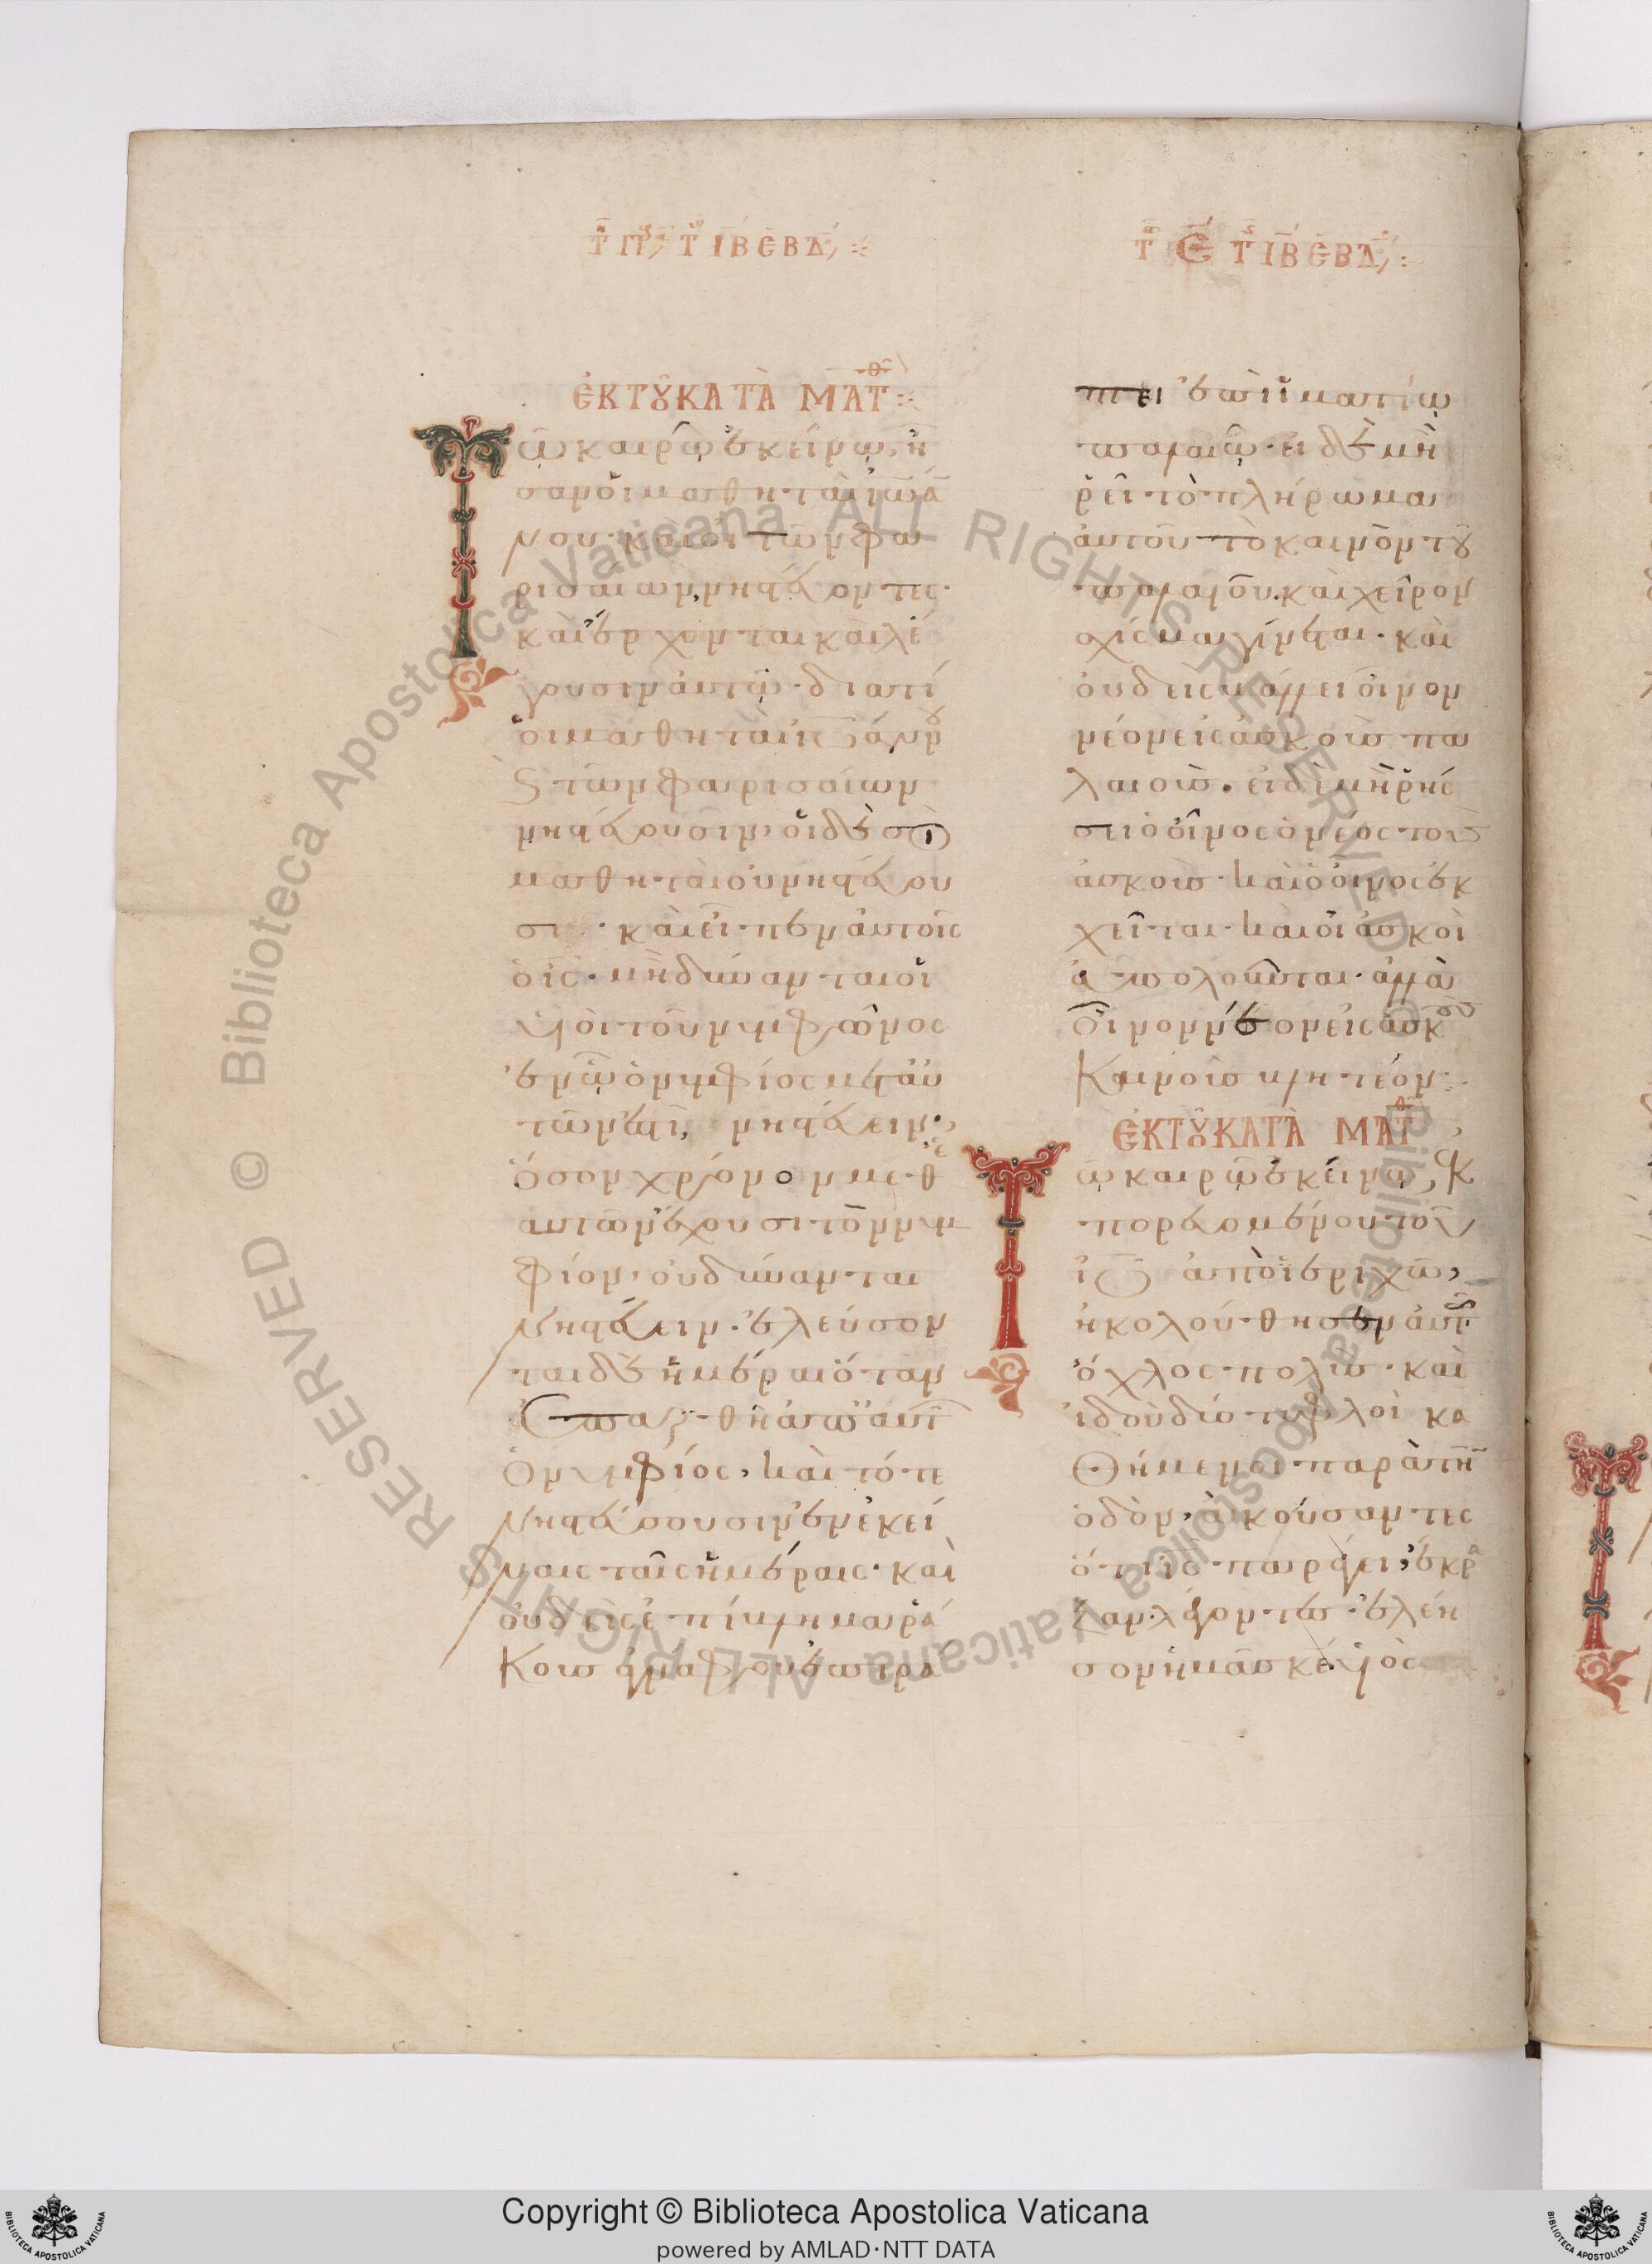 Τῇ Πϛ Τῆς ΙΒ ἑΒΔ
ἐκ τοῦ κατὰ Ματθ
ῷ καιρῷ ἐκείνῳ, ἦ
σαν οἱ μαθηταὶ ἰωά
νου καὶ οἱ τῶν φα
ρισαίων, νηστεύοντες·
καὶ ἔρχονται καὶ λέ
γουσιν αὐτῷ· διατί
οἱ μαθηταὶ ἰωάννου
καὶ τῶν φαρισαίων
νηστεύουσιν, οἱ δὲ σοὶ
μαθηταὶ οὐ νηστεύου
σι· καὶ εἶπεν αὐτοῖς
ὁ ις· μὴ δύνανται οἱ
υἱοὶ τοῦ νυμφῶνος
ἐν ᾧ ὁ νυμφίος μετ' αὐ
τῶν ἐστι, νηστεύειν·
ὅσον χρόνον μεθ
αὐτῶν ἔχουσι τὸν νυμ
φίον, οὐ δύνανται
νηστεύειν· ἐλεύσον
ται δὲ ἡμέραι ὅταν
ἀπαρθῇ ἀπ' αὐτ
ὁ νυμφίος, καὶ τότε
νηστεύσουσιν ἐν ἐκεί
ναις ταῖς ἡμέραις· καὶ
οὐδεὶς ἐπίβλημα ῥά
κους ἀγνάφου ἐπιρά
Τῷ Σα Τῆς ΙΒ ἑΒΔ
πτει ἐπὶ ἱματίῳ
παλαιῷ· εἰ δὲ μὴ
ῥεῖ τὸ πλήρωμα
αὐτοῦ τὸ καινὸν τοῦ
παλαιοῦ. καὶ χεῖρον
σχίσμα γίνεται· καὶ
οὐδεὶς βάλλει οἶνον
νέον εἰς ἀσκοὺς πα
λαιούς· εἰ δὲ μὴ ῥήσ
σει ὁ οἶνος ὁ νέος τοὺς
ἀσκοὺς· καὶ ὁ οἶνος ἐκ
χεῖται· καὶ οἱ ἀσκοὶ
ἀπολοῦνται· ἀλλὰ
οἶνον νέον εἰς ἀσκοὺς
καινοὺς βλητέον:
ἐκ τοῦ κατὰ Ματθ
ῷ καιρῷ ἐκείνῳ, ἐκ
πορευομένου τοῦ
ιυ ἀπὸ ἱεριχῶ,
ἠκολούθησεν αὐτῷ
ὄχλος πολύς· καὶ
ἰδοὺ δύο τυφλοὶ κα
θήμενοι παρὰ τὴν
ὁδὸν, ἀκούσαντες
ὅτι ις παράγει, ἔκρα
ξαν λέγοντες· ἐλέη
σον ἡμᾶς κε υἱὸς
Copyright © Biblioteca Apostolica Vaticana
powered by AMLAD·NTT DATA